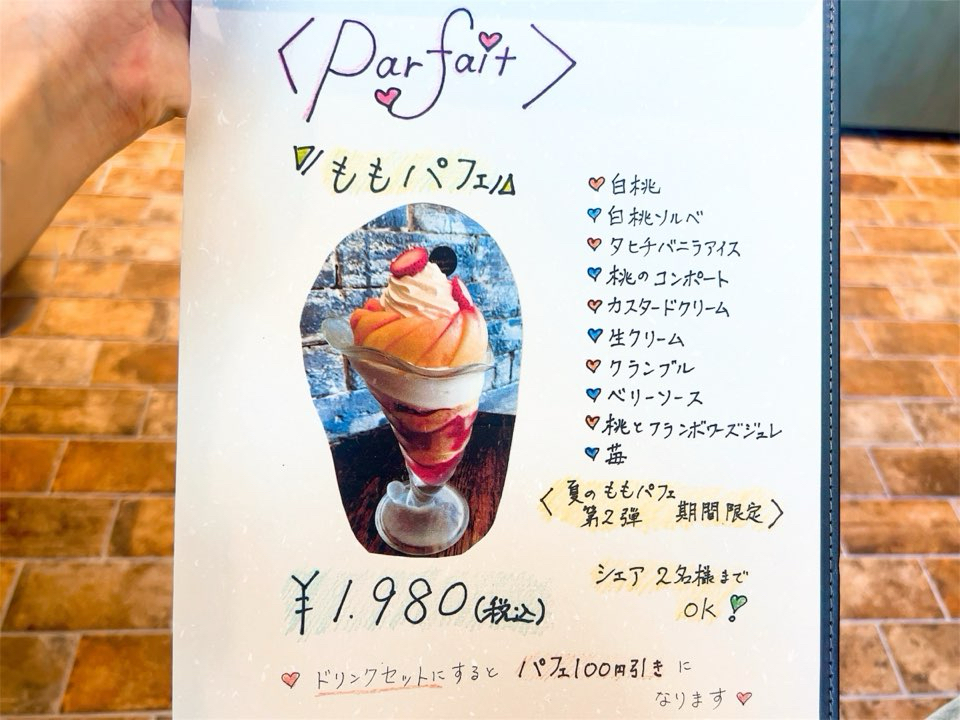 <Parfait>
ももパフェ
白桃
白桃ソルベ
タヒチバニラアイス
桃のコンポート
カスタードクリーム
生クリーム
クランブル
ベリーソース
桃とフランボワーズジュレ
苺
<夏のももパフェ
第2弾 期間限定>
シェア 2名様まで
OK!
¥1.980(税込)
ドリンクセットにすると パフェ100円引きに
なります